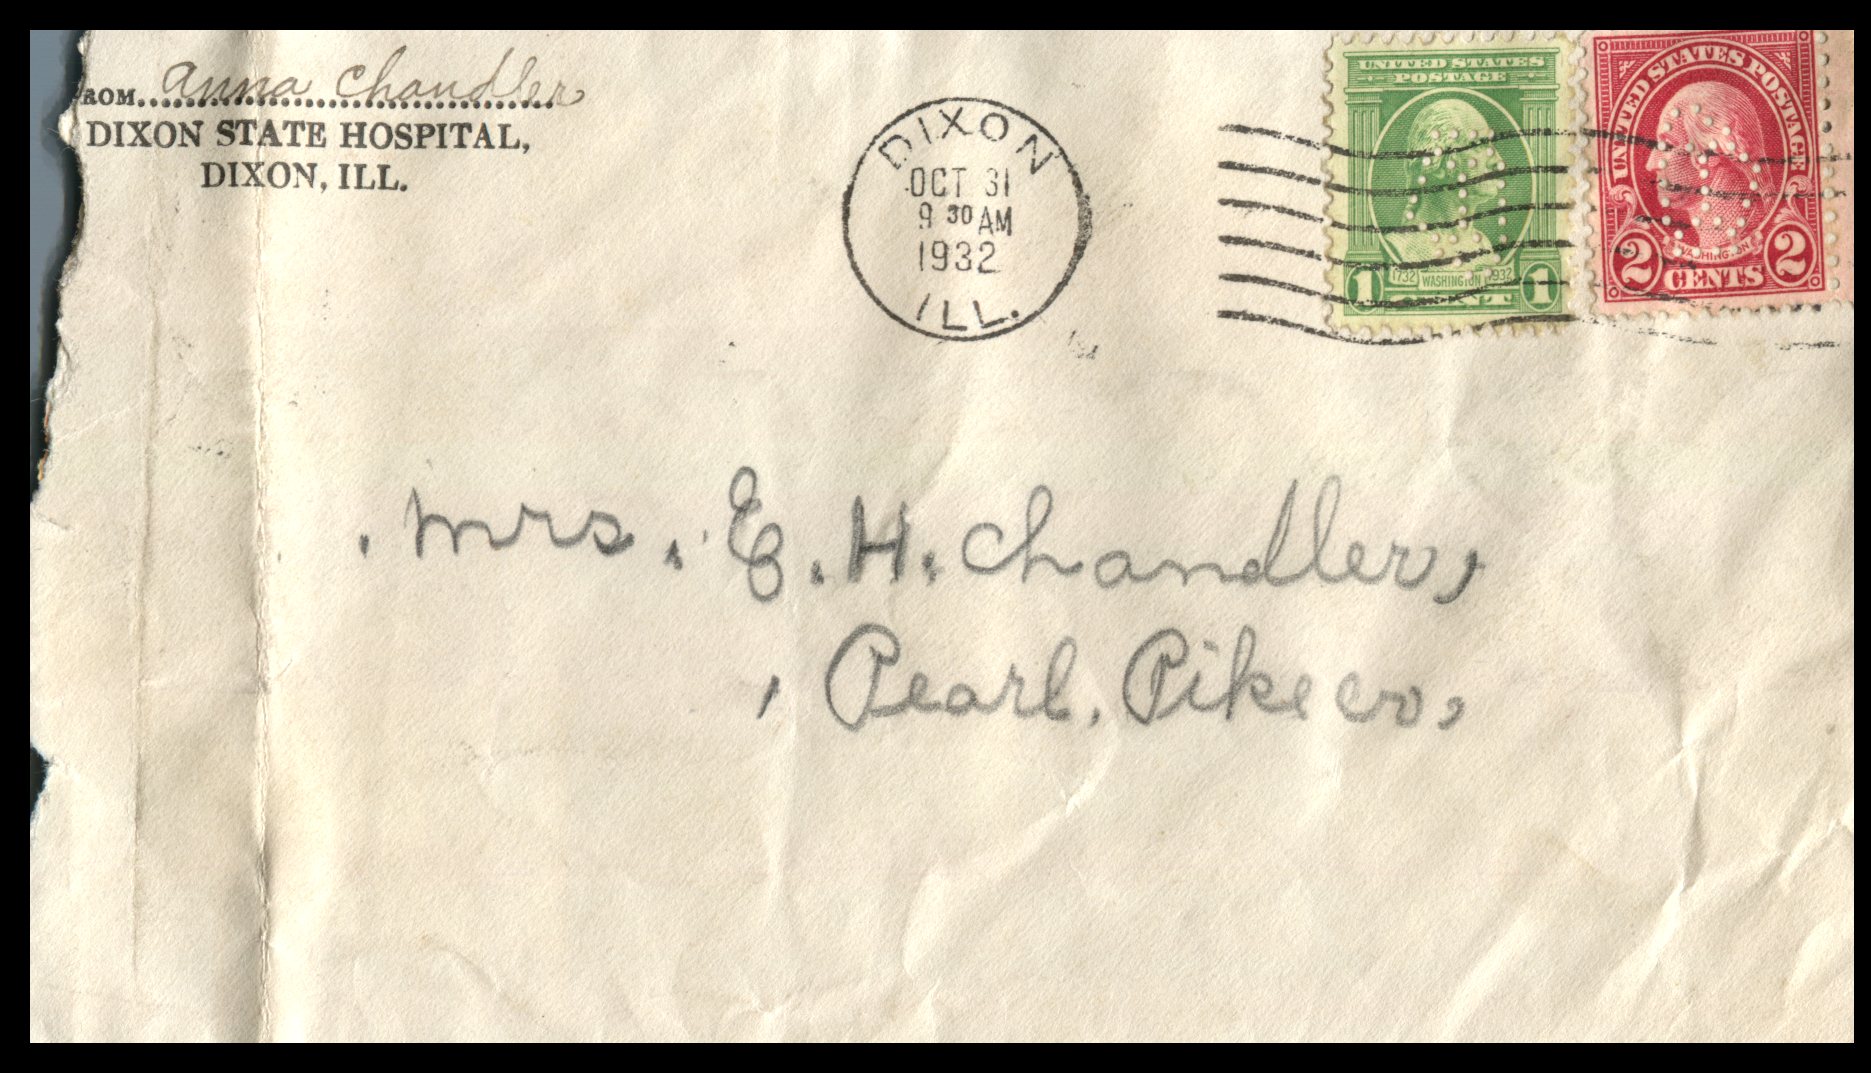 ROM Anna Chandler
DIXON STATE HOSPITAL,
DIXON, ILL.
DIXON
OCT 31
9 30 AM
1932
ILL.
UNITED STATES
POSTAGE
1732 WASHINGTON 1932
1 CENT 1
UNITED STATES POSTAGE
WASHINGTON
2 CENTS 2
. Mrs. E. H. Chandler,
, Pearl. Pike co,